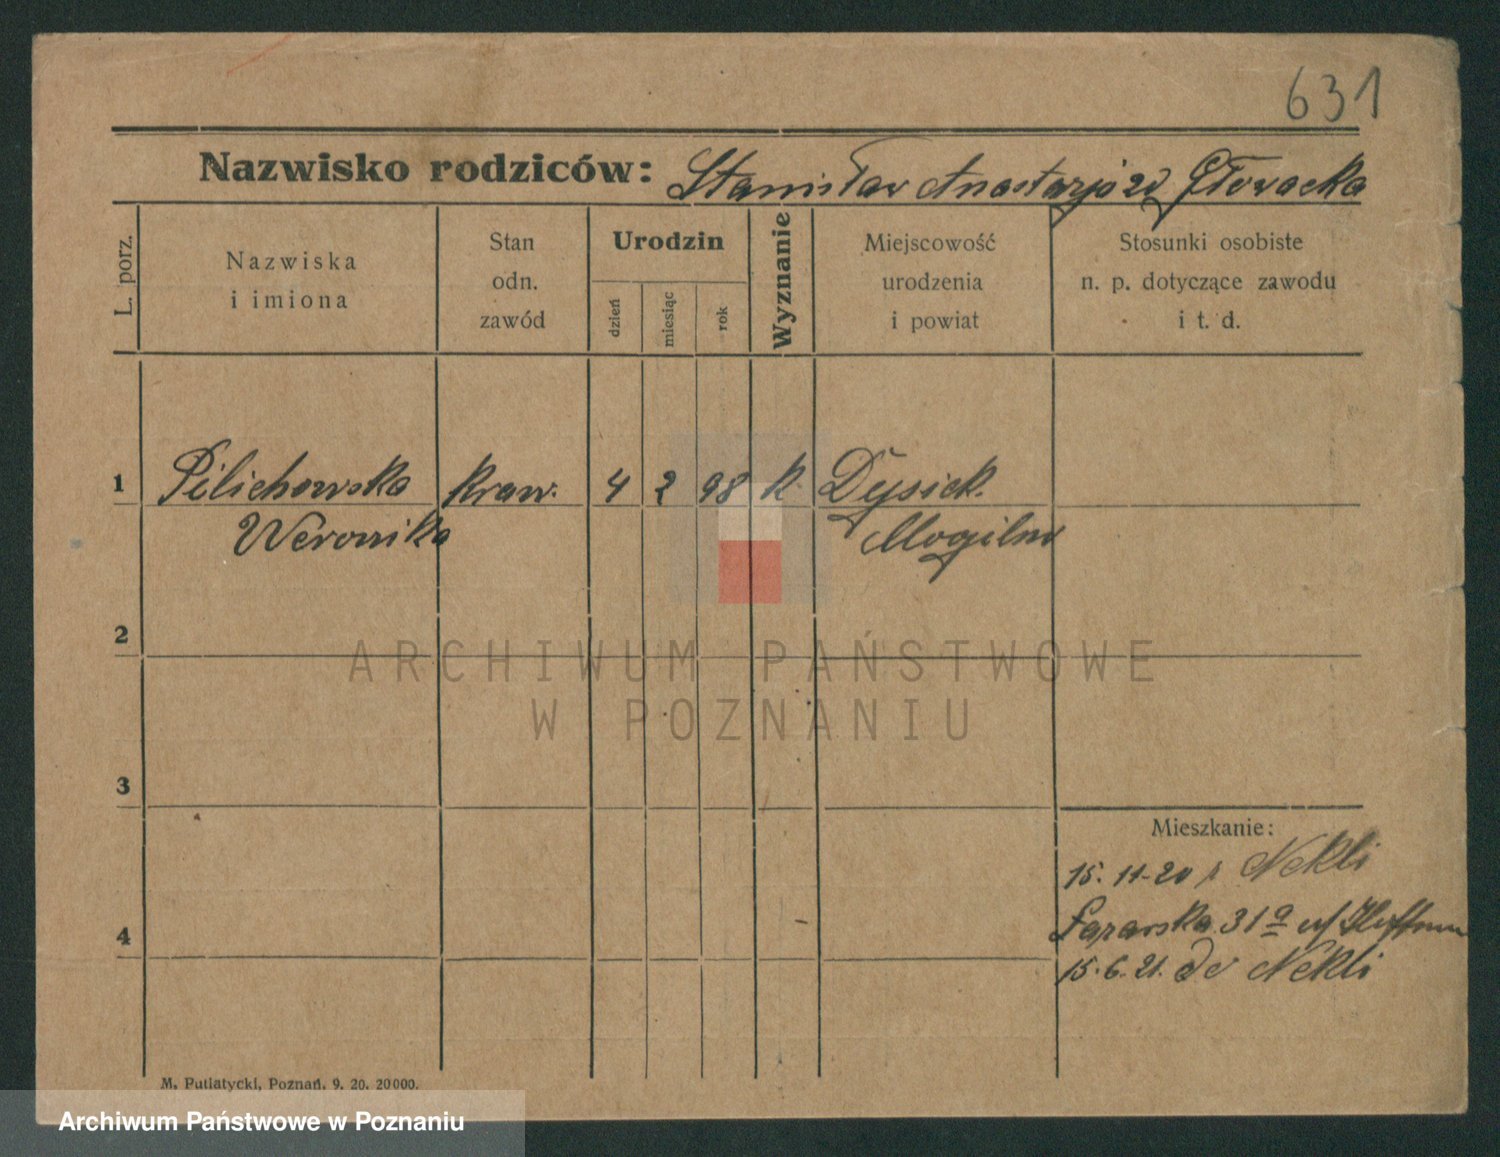 631
Nazwisko rodziców: Stanisław Anastazja zd Głowacka
L. porz.
Nazwiska
i imiona
Stan
odn.
zawód
Urodzin
dzień
miesiąc
rok
Wyznanie
Miejscowość
urodzenia
i powiat
Stosunki osobiste
n. p. dotyczące zawodu
i t. d.
1 Pilichowska kraw. 4 2 98 k. Dysiek.
Weronika Mogilno
2
ARCHIWUM PAŃSTWOWE
W POZNANIU
3
Mieszkanie:
15. 11-20 z Nekli
4
Łazarska 31a
15. 6. 21. do Nekli
M. Putiatycki, Poznań. 9. 20. 20000.
Archiwum Państwowe w Poznaniu